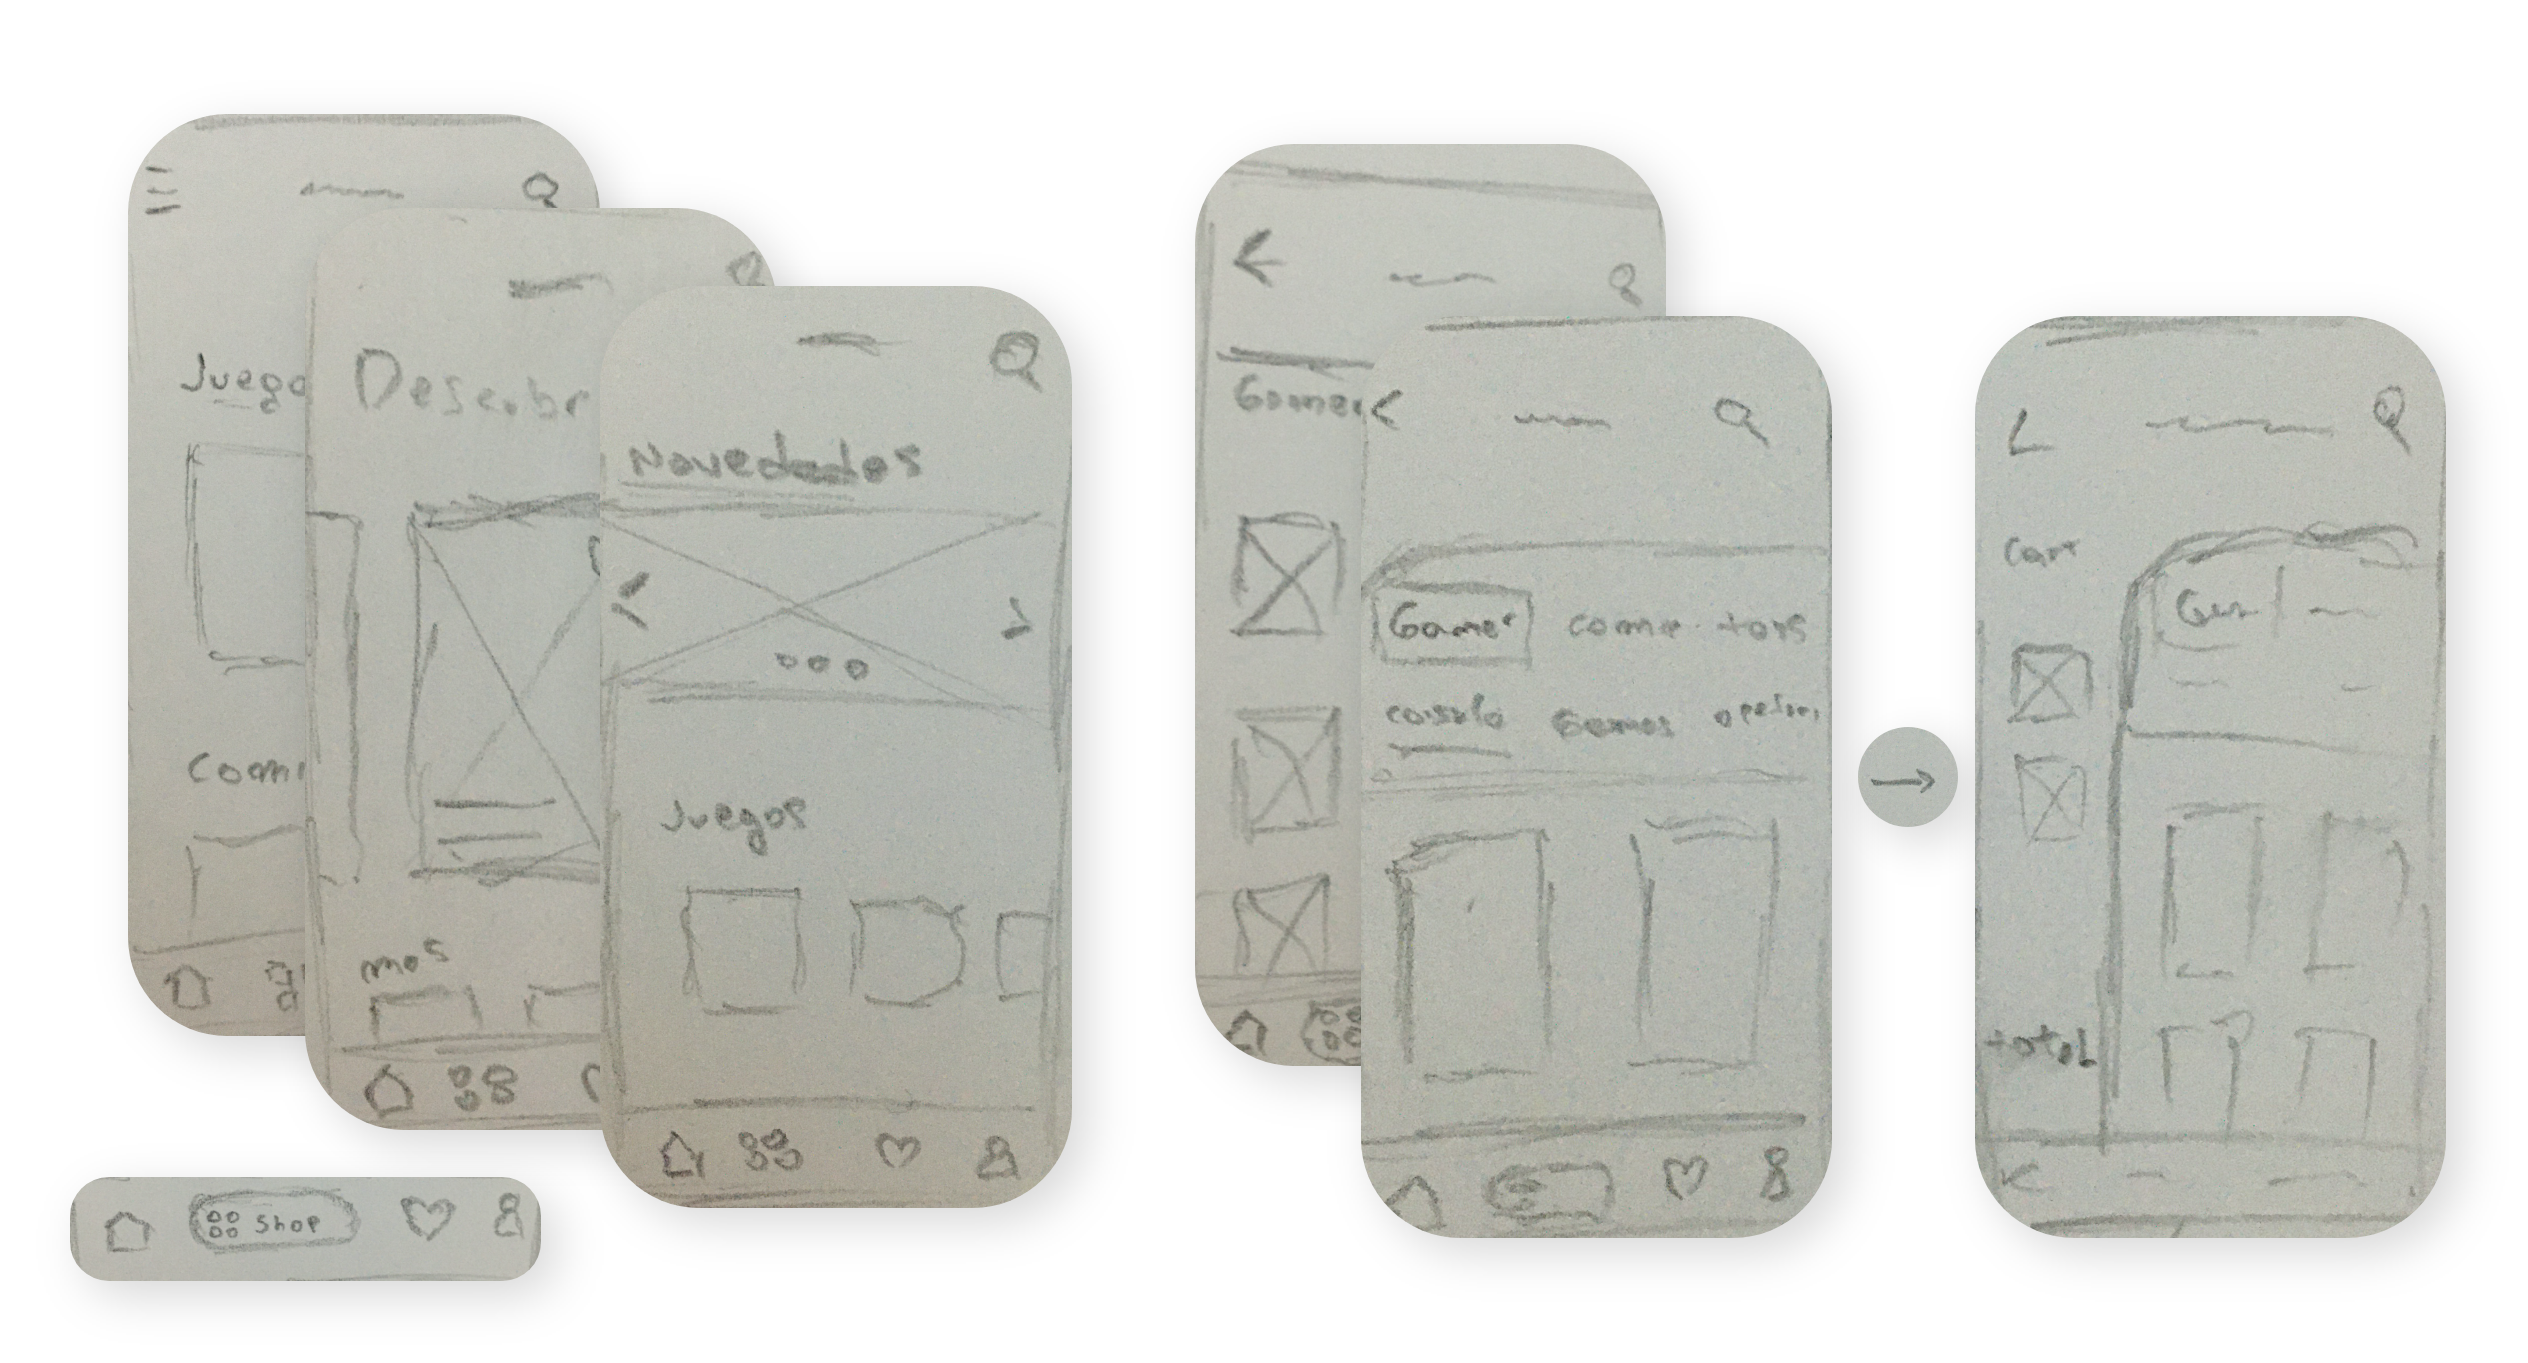 Juego
Comi
Descubr
mas
Novedades
Juegos
Shop
Gamer
Gamer comic toys
consola Games
cart
total